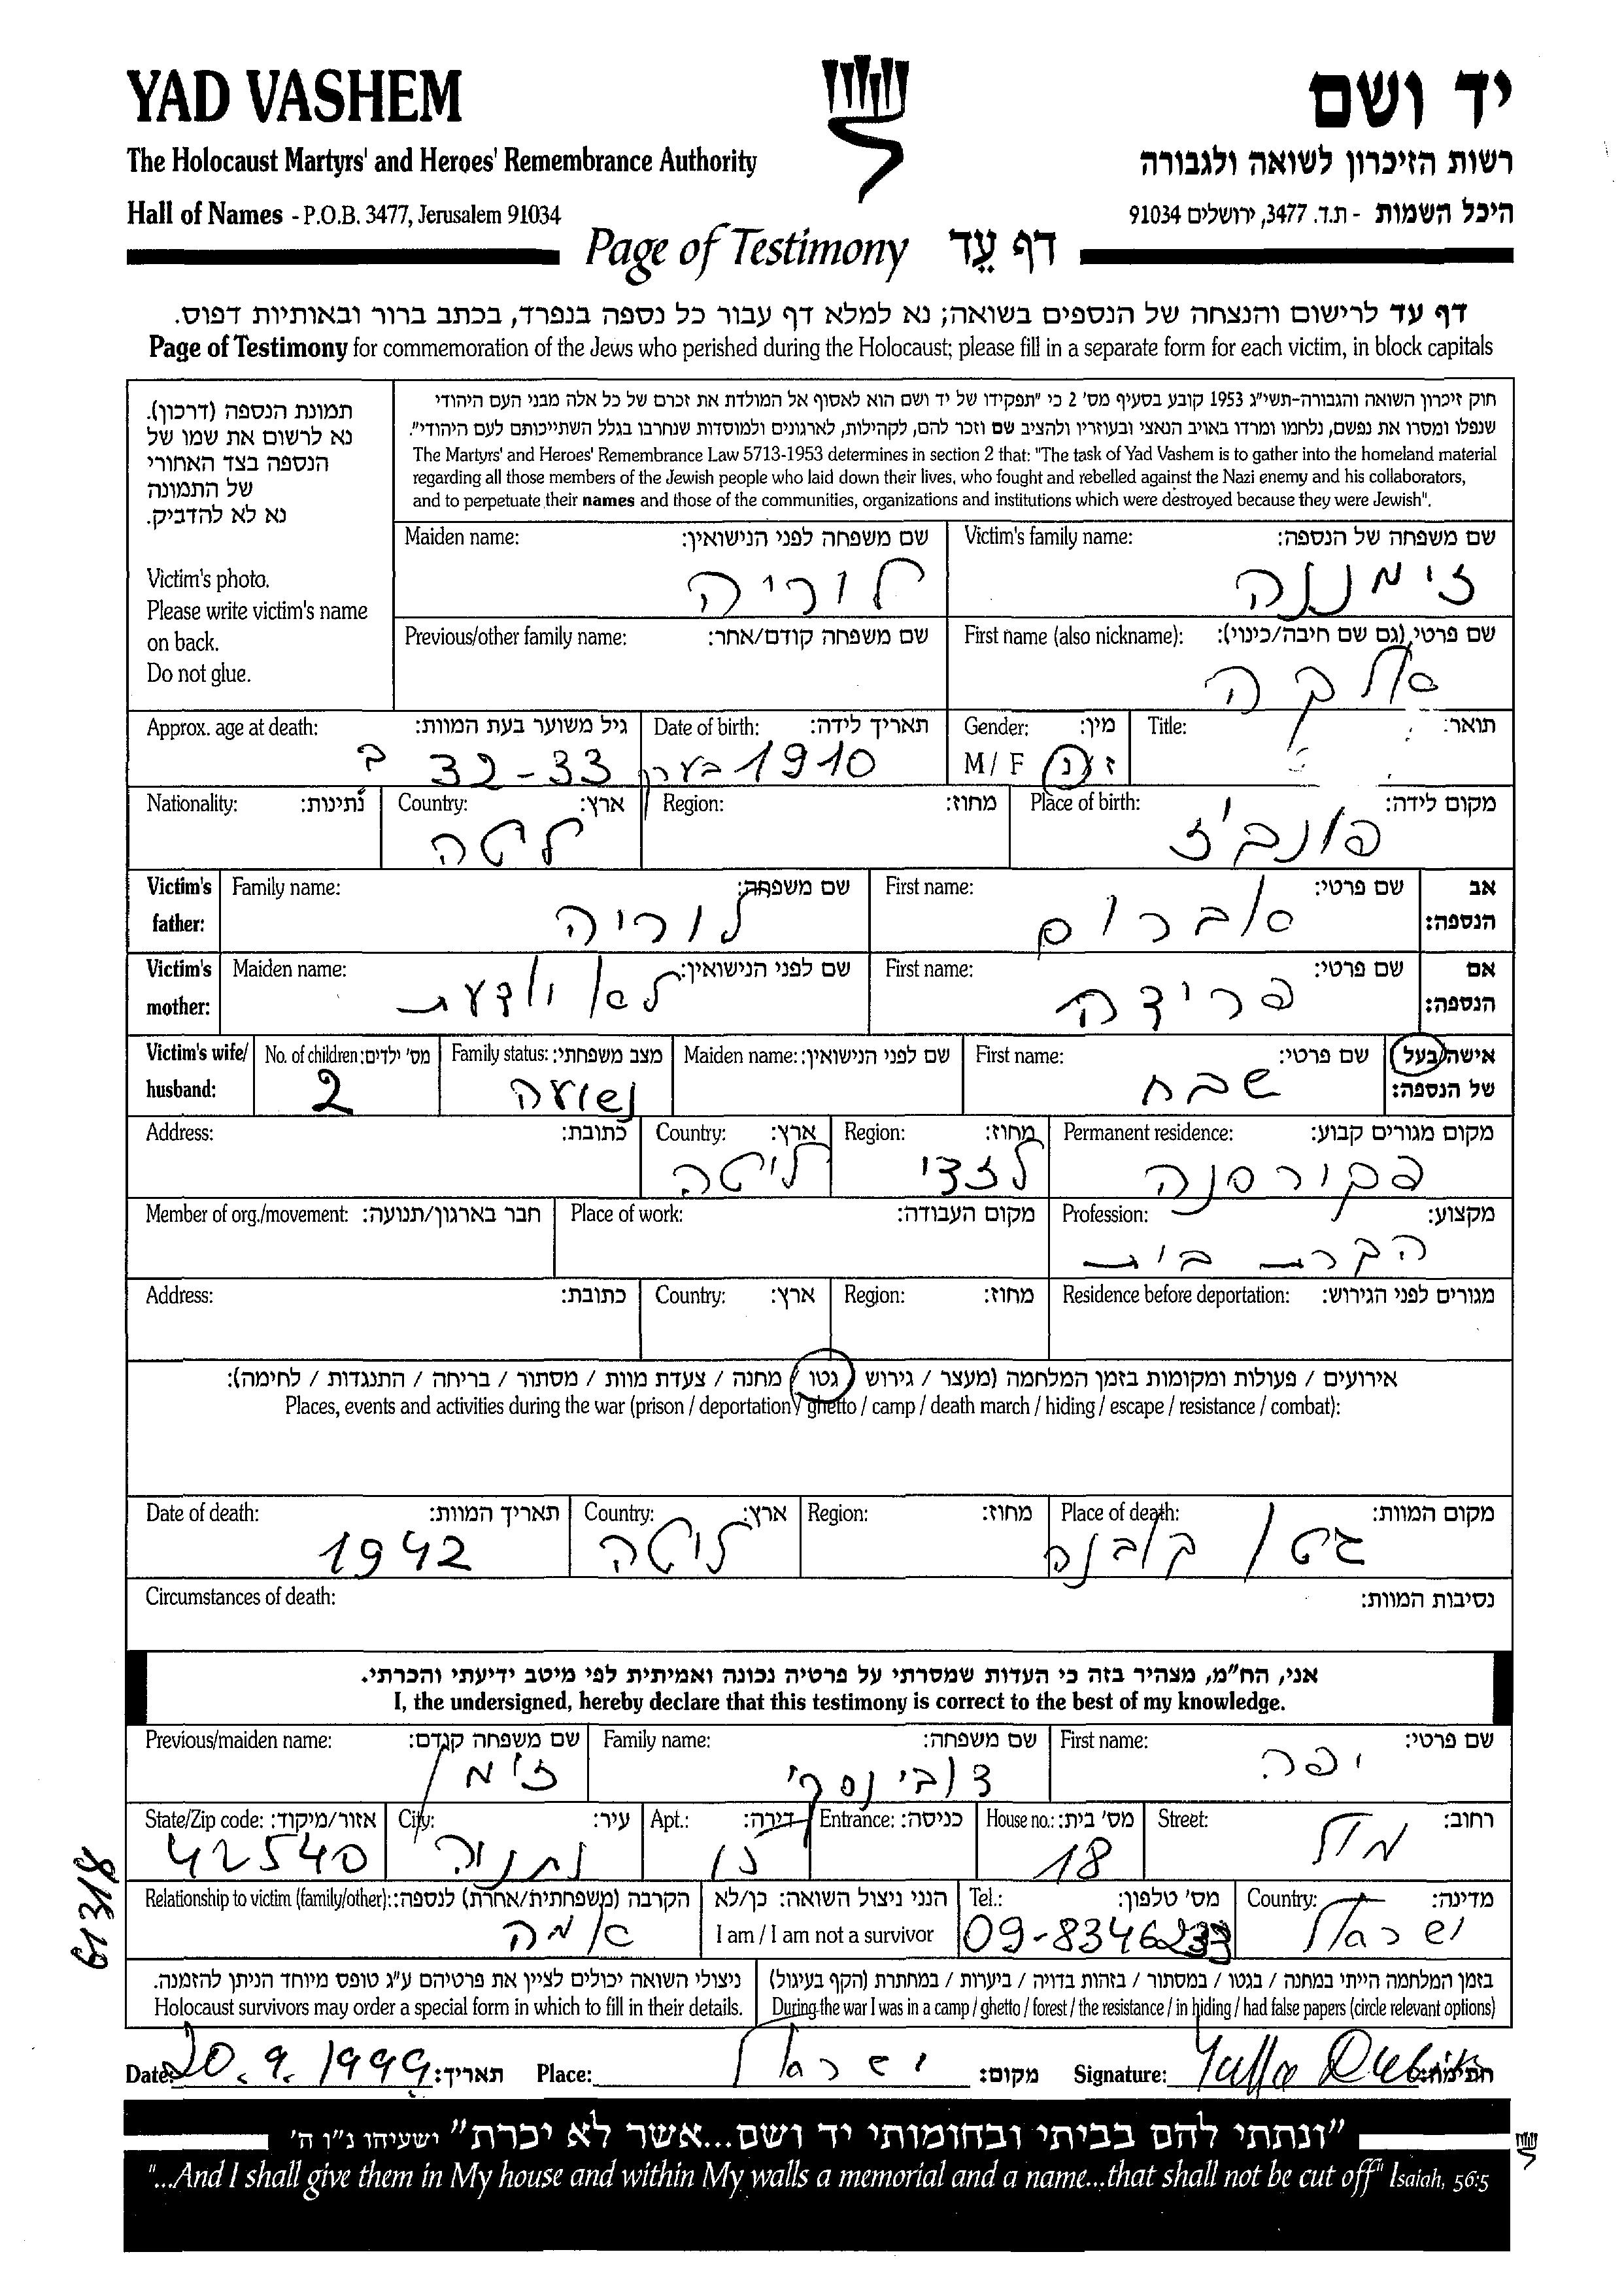 YAD VASHEM
יד ושם
The Holocaust Martyrs' and Heroes' Remembrance Authority
רשות הזיכרון לשואה ולגבורה
Hall of Names - P.O.B. 3477, Jerusalem 91034
היכל השמות - ת.ד. 3477, ירושלים 91034
Page of Testimony דף עֵד
דף עד לרישום והנצחה של הנספים בשואה; נא למלא דף עבור כל נספה בנפרד, בכתב ברור ובאותיות דפוס.
Page of Testimony for commemoration of the Jews who perished during the Holocaust; please fill in a separate form for each victim, in block capitals
תמונת הנספה (דרכון).
נא לרשום את שמו של
הנספה בצד האחורי
של התמונה
נא לא להדביק.
Victim's photo.
Please write victim's name
on back.
Do not glue.
חוק זיכרון השואה והגבורה-תשי"ג 1953 קובע בסעיף מס' 2 כי "תפקידו של יד ושם הוא לאסוף אל המולדת את זכרם של כל אלה מבני העם היהודי
שנפלו ומסרו את נפשם, נלחמו ומרדו באויב הנאצי ובעוזריו ולהציב שם וזכר להם, לקהילות, לארגונים ולמוסדות שנחרבו בגלל השתייכותם לעם היהודי".
The Martyrs' and Heroes' Remembrance Law 5713-1953 determines in section 2 that: "The task of Yad Vashem is to gather into the homeland material
regarding all those members of the Jewish people who laid down their lives, who fought and rebelled against the Nazi enemy and his collaborators,
and to perpetuate their names and those of the communities, organizations and institutions which were destroyed because they were Jewish".
Victim's family name: שם משפחה של הנספה:
זימננה
Maiden name: שם משפחה לפני הנישואין:
לוריה
First name (also nickname): שם פרטי (גם שם חיבה/כינוי):
אלקה
Previous/other family name: שם משפחה קודם/אחר:
Title: תואר:
Gender: מין:
M / F ז / נ
Date of birth: תאריך לידה:
1910 בערך
Approx. age at death: גיל משוער בעת המוות:
32-33 ב
Place of birth: מקום לידה:
פונביז
Region: מחוז:
Country: ארץ:
ליטה
Nationality: נתינות:
Victim's father: אב הנספה:
First name: שם פרטי:
אברום
Family name: שם משפחה:
לוריה
Victim's mother: אם הנספה:
First name: שם פרטי:
פרידה
Maiden name: שם לפני הנישואין:
לא יודעת
Victim's wife/ husband: אישה/בעל של הנספה:
First name: שם פרטי:
שבח
Maiden name: שם לפני הנישואין:
Family status: מצב משפחתי:
נשואה
No. of children: מס' ילדים:
2
Permanent residence: מקום מגורים קבוע:
Region: מחוז:
לזדי
Country: ארץ:
ליטה
Address: כתובת:
Profession: מקצוע:
עקרת בית
Place of work: מקום העבודה:
Member of org./movement: חבר בארגון/תנועה:
Residence before deportation: מגורים לפני הגירוש:
Region: מחוז:
Country: ארץ:
Address: כתובת:
אירועים / פעולות ומקומות בזמן המלחמה (מעצר / גירוש / גטו / מחנה / צעדת מוות / מסתור / בריחה / התנגדות / לחימה):
Places, events and activities during the war (prison / deportation / ghetto / camp / death march / hiding / escape / resistance / combat):
Place of death: מקום המוות:
גיטו קובנה
Region: מחוז:
Country: ארץ:
ליטה
Date of death: תאריך המוות:
1942
Circumstances of death: נסיבות המוות:
אני, הח"מ, מצהיר בזה כי העדות שמסרתי על פרטיה נכונה ואמיתית לפי מיטב ידיעתי והכרתי.
I, the undersigned, hereby declare that this testimony is correct to the best of my knowledge.
First name: שם פרטי:
יפה
Family name: שם משפחה:
דובינסקי
Previous/maiden name: שם משפחה קודם:
זימן
Street: רחוב:
House no.: מס' בית:
18
Entrance: כניסה:
Apt.: דירה:
City: עיר:
נתניה
State/Zip code: אזור/מיקוד:
42540
Country: מדינה:
ישראל
Tel.: מס' טלפון:
09-8346233
הנני ניצול השואה: כן/לא
I am / I am not a survivor
Relationship to victim (family/other): הקרבה (משפחתית/אחרת) לנספה:
אמה
בזמן המלחמה הייתי במחנה / בגטו / במסתור / בזהות בדויה / ביערות / במחתרת (הקף בעיגול)
During the war I was in a camp / ghetto / forest / the resistance / in hiding / had false papers (circle relevant options)
ניצולי השואה יכולים לציין את פרטיהם ע"ג טופס מיוחד הניתן להזמנה.
Holocaust survivors may order a special form in which to fill in their details.
Date: 20.9.1999 תאריך: Place: ישראל מקום: Signature: חתימה:
61318
"ונתתי להם בביתי ובחומותי יד ושם...אשר לא יכרת" ישעיהו נ"ו ה'
"...And I shall give them in My house and within My walls a memorial and a name...that shall not be cut off" Isaiah, 56:5